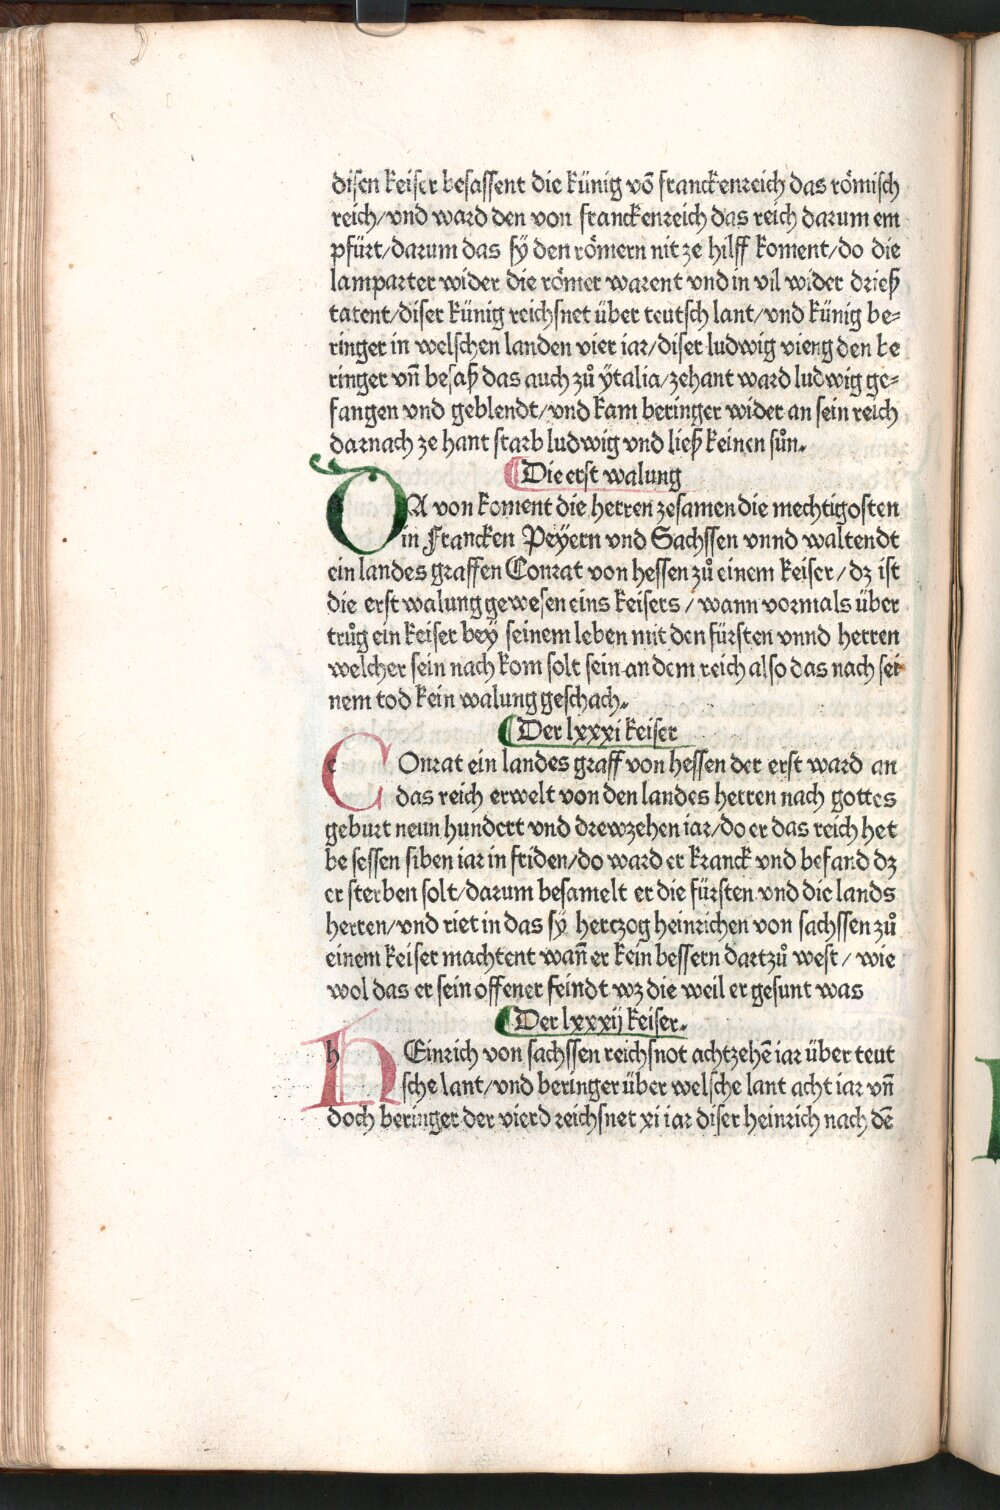 disen keiser besassent die künig võ franckenreich das römisch
reich/vnd ward den von franckenreich das reich darum em
pfürt/darum das sÿ den römern nit ze hilff koment/do die
lamparter wider die römer warent vnd in vil wider drieß
tatent/diser künig reichsnet über teutsch lant/vnd künig be⸗
ringer in welschen landen vier iar/diser ludwig vieng den be
ringer vñ besaß das auch zů ÿtalia/zehant ward ludwig ge⸗
fangen vnd geblendt/vnd kam beringer wider an sein reich
darnach ze hant starb ludwig vnd ließ keinen sůn.
Die erst walung
DA von koment die herren zesamen die mechtigosten
in Francken Peÿern vnd Sachssen vnnd waltendt
ein landes graffen Conrat von hessen zů einem keiser/dz ist
die erst walung gewesen eins keisers/wann vormals über
trůg ein keiser beÿ seinem leben mit den fürsten vnnd herren
welcher sein nach kom solt sein an dem reich also das nach sei
nem tod kein walung geschach.
Der lxxxi keiser
COnrat ein landes graff von hessen der erst ward an
das reich erwelt von den landes herren nach gottes
geburt neun hundert vnd drewzehen iar/do er das reich het
be sessen siben iar in friden/do ward er kranck vnd befand dz
er sterben solt/darum besamelt er die fürsten vnd die lands
herren/vnd riet in das sÿ hertzog heinrichen von sachssen zů
einem keiser machtent wañ er kein bessern dartzů west/wie
wol das er sein offener feindt wz die weil er gesunt was
Der lxxxij keiser.
hEinrich von sachssen reichsnot achtzehẽ iar über teut
sche lant/vnd beringer über welsche lant acht iar vñ
doch beringer der vierd reichsnet xi iar diser heinrich nach dẽ